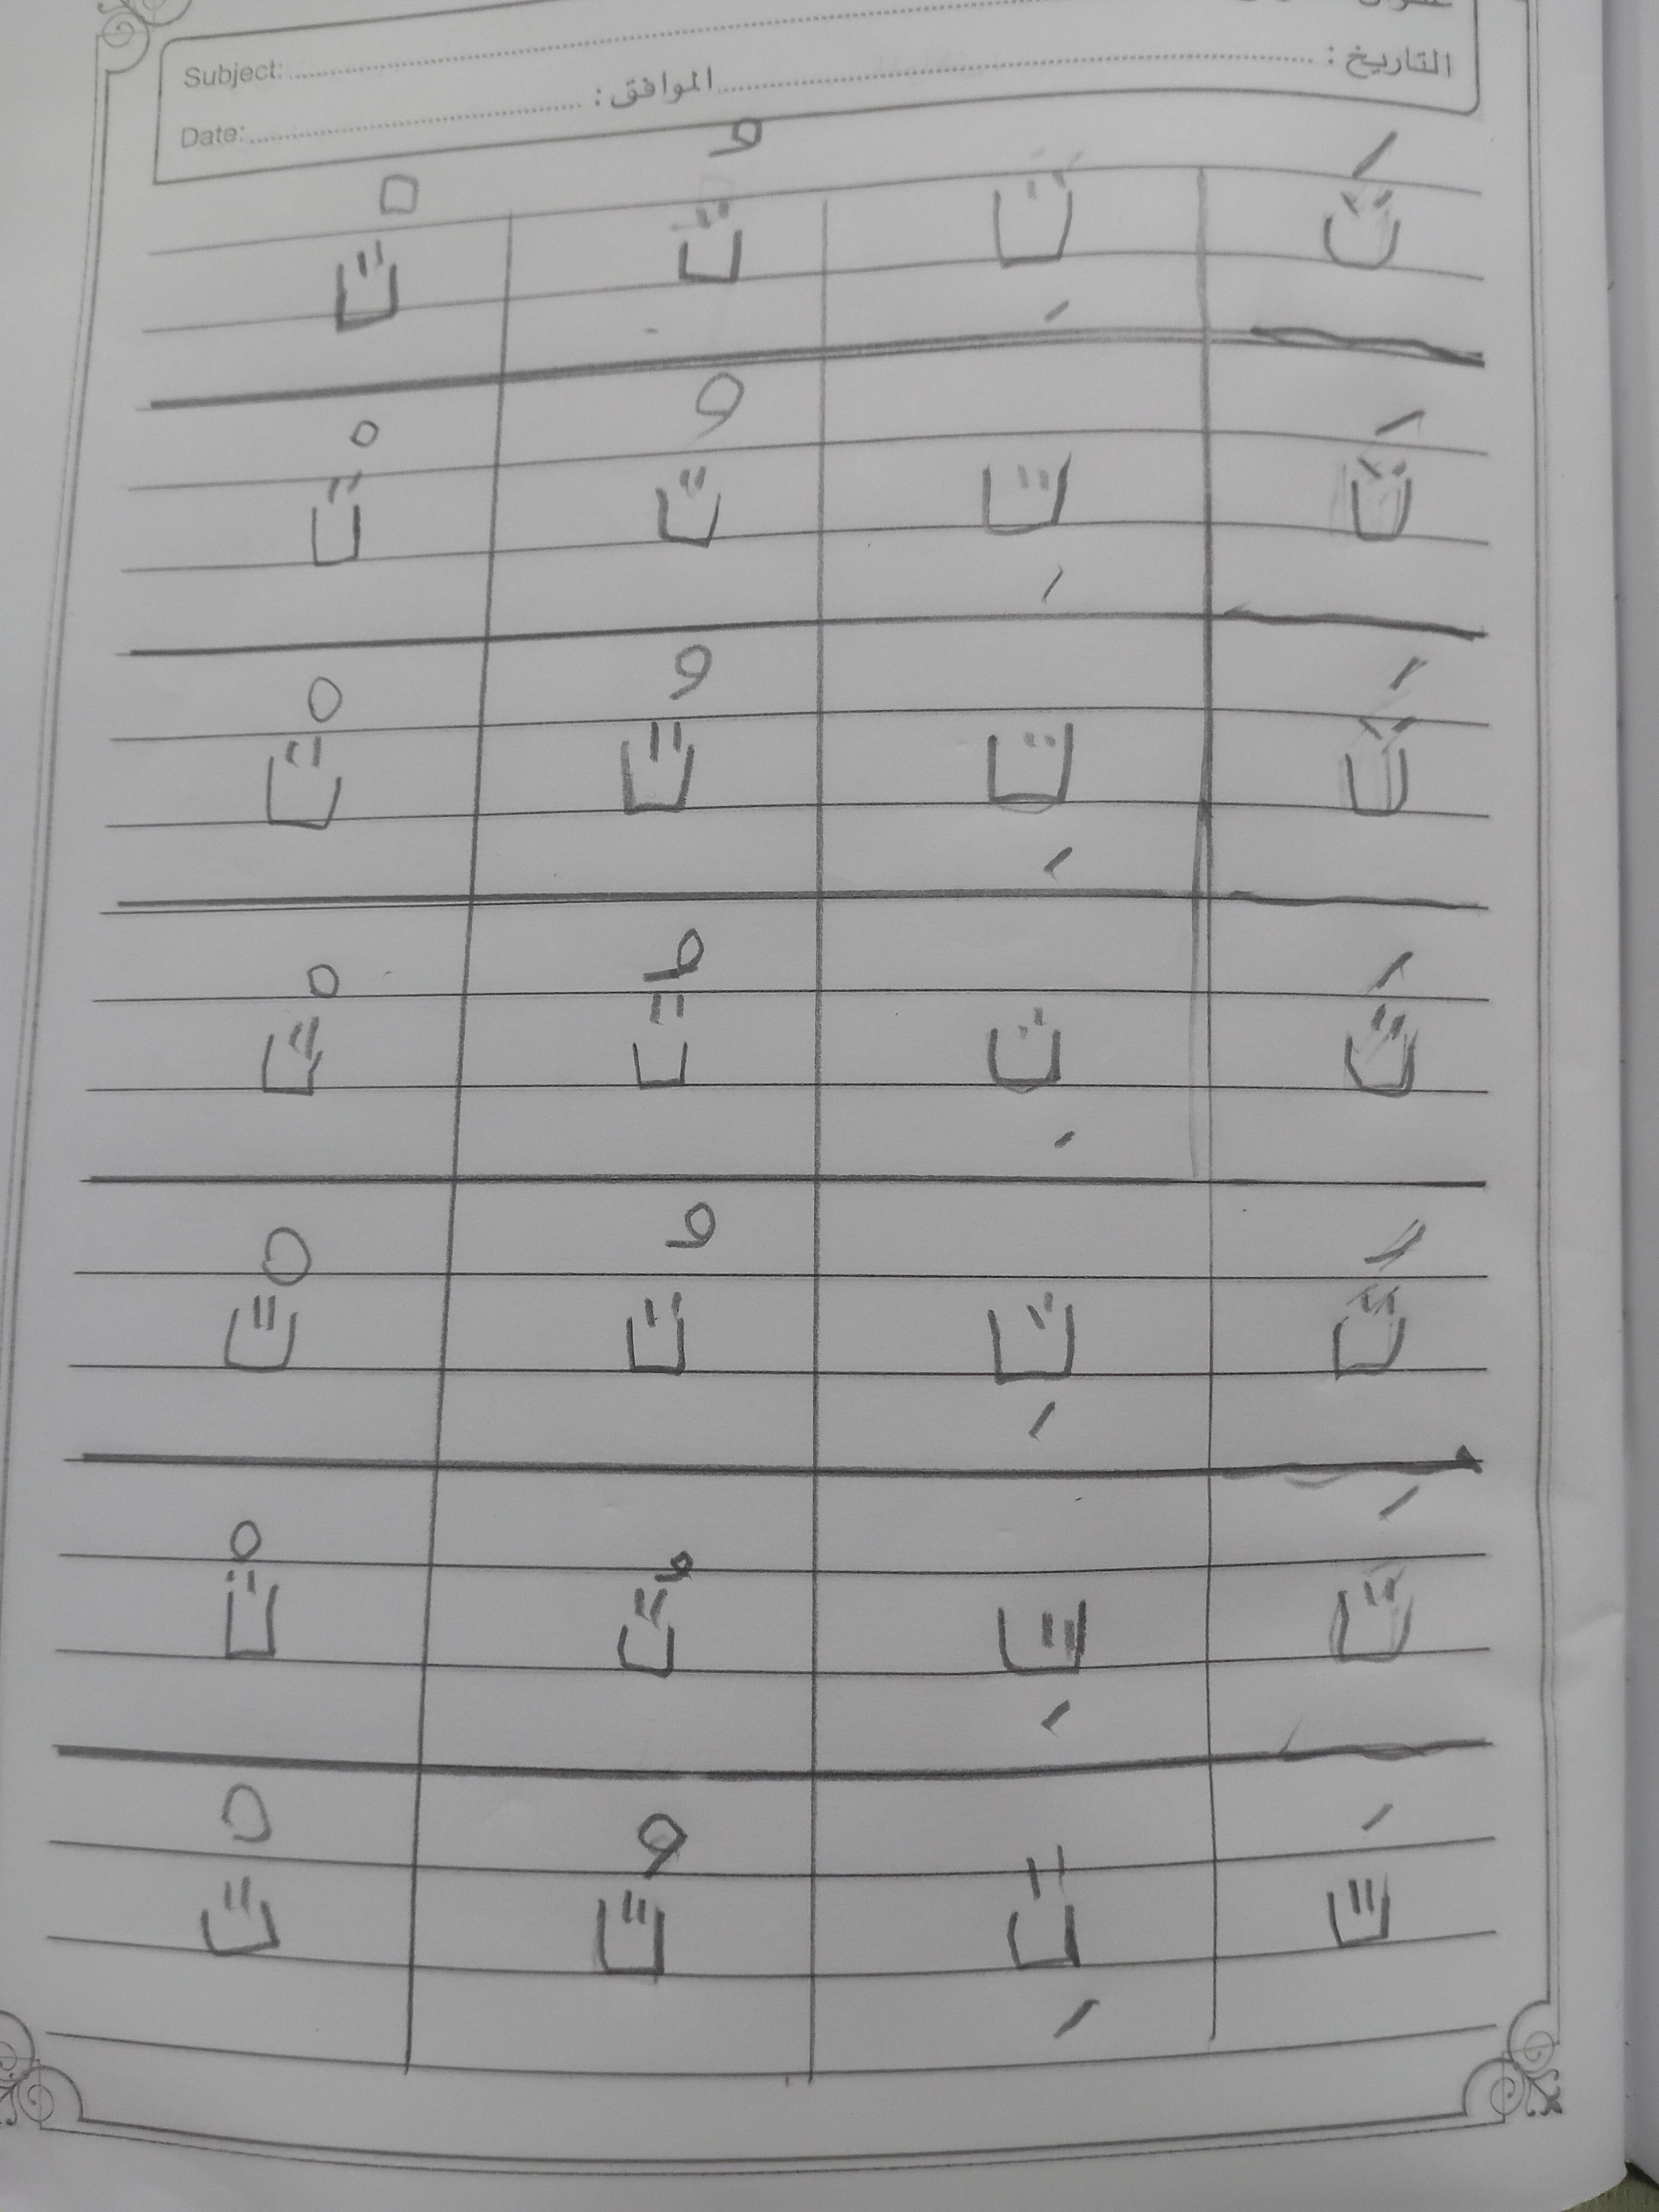 Subject: التاريخ :
Date: الموافق :
تَ تِ تُ تْ
تَ تِ تُ تْ
تَ تِ تُ تْ
تَ تِ تُ تْ
تَ تِ تُ تْ
تَ تِ تُ تْ
تَ تِ تُ تْ